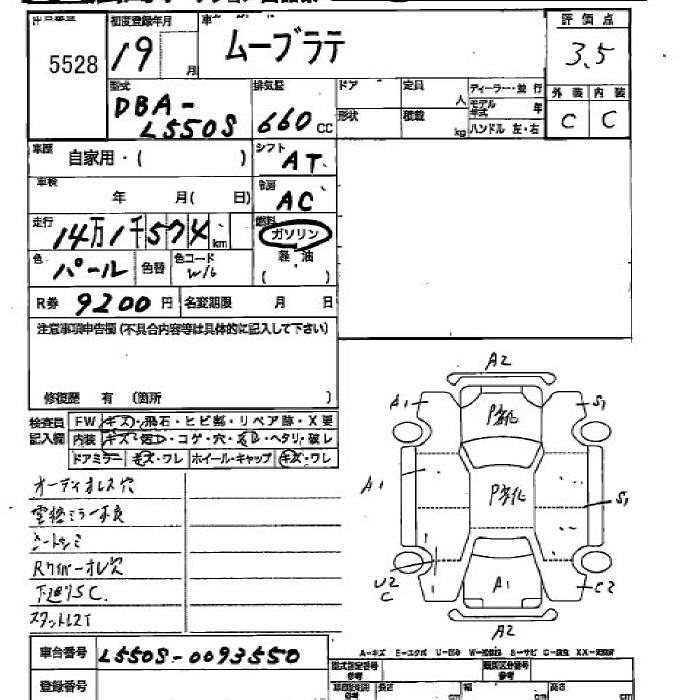 5528
初度登録年月
19 月
ムーブラテ
評価点
3.5
外装 内装
C C
型式
DBA-
L550S
排気量
660 cc
ドア
定員
人
形状
積載
kg
ディーラー・並行
モデル年式 年
ハンドル 左・右
車歴
自家用・( )
シフト
AT
車検
年 月( 日)
冷房
AC
走行
14万1千574 km
燃料
ガソリン
軽油
( )
色
パール
色替
色コード
W16
R券 9200円
名変期限 月 日
注意事項申告欄(不具合内容等は具体的に記入して下さい)
修復歴 有 (箇所 )
検査員
記入欄
FW キズ・飛石・ヒビ割・リペア跡・X要
内装 キズ・コゲ・穴・ヘタリ・破レ
ドアミラー キズ・ワレ ホイール・キャップ キズ・ワレ
オーディオレス穴
電格ミラー不良
シートシミ
Rワイパーオレ穴
下廻りSC.
スタットレスT
A2
A1
S1
P劣化
A1
P劣化
S1
U2
C
A1
C2
A2
車台番号 L550S-0093550
登録番号
型式指定番号
参考
類別区分番号
参考
長さ cm
幅 cm
高さ cm